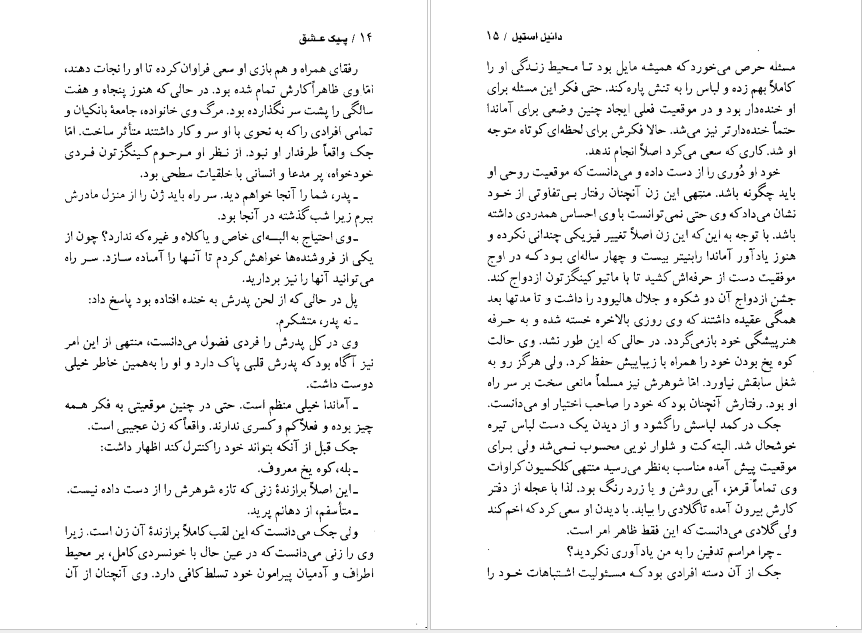 ۱۴ / پیک عشق
رفقای همراه و هم بازی او سعی فراوان کرده تا او را نجات دهند،
امّا وی ظاهراً کارش تمام شده بود. در حالی که هنوز پنجاه و هفت
سالگی را پشت سر نگذارده بود. مرگ وی خانواده، جامعهٔ بانکیان و
تمامی افرادی را که به نحوی با او سر و کار داشتند متأثر ساخت. امّا
جک واقعاً طرفدار او نبود. از نظر او مرحوم کینگزتون فردی
خودخواه، پر مدعا و انسانی با خلقیات سطحی بود.
ـ پدر، شما را آنجا خواهم دید. سر راه باید ژن را از منزل مادرش
ببرم زیرا شب گذشته در آنجا بود.
ـ وی احتیاج به البسه‌ای خاص و یا کلاه و غیره که ندارد؟ چون از
یکی از فروشنده‌ها خواهش کردم تا آنها را آماده سازد. سر راه
می‌توانید آنها را نیز بردارید.
پل در حالی که از لحن پدرش به خنده افتاده بود پاسخ داد:
ـ نه پدر، متشکرم.
وی در کل پدرش را فردی فضول می‌دانست، منتهی از این امر
نیز آگاه بود که پدرش قلبی پاک دارد و او را به‌همین خاطر خیلی
دوست داشت.
ـ آماندا خیلی منظم است. حتی در چنین موقعیتی به فکر همه
چیز بوده و فعلاً کم و کسری ندارند. واقعاً که زن عجیبی است.
جک قبل از آنکه بتواند خود را کنترل کند اظهار داشت:
ـ بله، کوه یخ معروف.
ـ این اصلاً برازندهٔ زنی که تازه شوهرش را از دست داده نیست.
ـ متأسفم، از دهانم پرید.
ولی جک می‌دانست که این لقب کاملاً برازندهٔ آن زن است. زیرا
وی را زنی می‌دانست که در عین حال با خونسردی کامل، بر محیط
اطراف و آدمیان پیرامون خود تسلط کافی دارد. وی آنچنان از آن
دانیل استیل / ۱۵
مسئله حرص می‌خورد که همیشه مایل بود تا محیط زندگی او را
کاملاً بهم زده و لباس را به تنش پاره کند. حتی فکر این مسئله برای
او خنده‌دار بود و در موقعیت فعلی ایجاد چنین وضعی برای آماندا
حتماً خنده‌دارتر نیز می‌شد. حالا فکرش برای لحظه‌ای کوتاه متوجه
او شد. کاری که سعی می‌کرد اصلاً انجام ندهد.
خود او دُوری را از دست داده و می‌دانست که موقعیت روحی او
باید چگونه باشد. منتهی این زن آنچنان رفتار بی‌تفاوتی از خود
نشان می‌داد که وی حتی نمی‌توانست با وی احساس همدردی داشته
باشد. با توجه به این که این زن اصلاً تغییر فیزیکی چندانی نکرده و
هنوز یادآور آماندا رابنیتر بیست و چهار ساله‌ای بود که در اوج
موفقیت دست از حرفه‌اش کشید تا با ماتیو کینگزتون ازدواج کند.
جشن ازدواج آن دو شکوه و جلال هالیوود را داشت و تا مدتها بعد
همگی عقیده داشتند که وی روزی بالاخره خسته شده و به حرفه
هنرپیشگی خود بازمی‌گردد. در حالی که این طور نشد. وی حالت
کوه یخ بودن خود را همراه با زیباییش حفظ کرد. ولی هرگز رو به
شغل سابقش نیاورد. امّا شوهرش نیز مسلماً مانعی سخت بر سر راه
او بود. رفتارش آنچنان بود که خود را صاحب اختیار او می‌دانست.
جک در کمد لباسش را گشود و از دیدن یک دست لباس تیره
خوشحال شد. البته کت و شلوار نویی محسوب نمی‌شد ولی برای
موقعیت پیش آمده مناسب به‌نظر می‌رسید منتهی کلکسیون کراوات
وی تماماً قرمز، آبی روشن و یا زرد رنگ بود. لذا با عجله از دفتر
کارش بیرون آمده تا گلادی را بیابد. با دیدن او سعی کرد که اخم کند
ولی گلادی می‌دانست که این فقط ظاهر امر است.
ـ چرا مراسم تدفین را به من یادآوری نکردید؟
جک از آن دسته افرادی بود که مسئولیت اشتباهات خود را